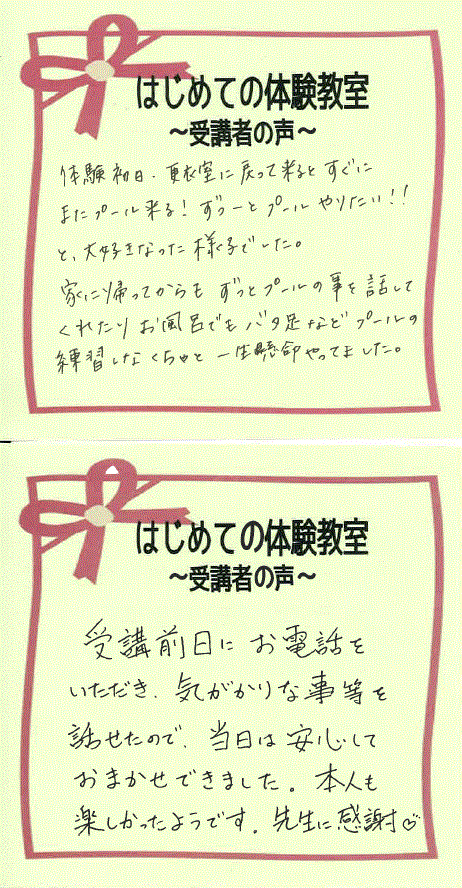 はじめての体験教室
～受講者の声～
体験初日、更衣室に戻って来るとすぐに
またプール来る！ずーっとプールやりたい！！
と、大好きなった様子でした。
家に帰ってからもずっとプールの事を話して
くれたりお風呂でもバタ足などプールの
練習しなくちゃと一生懸命やってました。
はじめての体験教室
～受講者の声～
受講前日にお電話を
いただき、気がかりな事等を
話せたので、当日は安心して
おまかせできました。本人も
楽しかったようです。先生に感謝♡